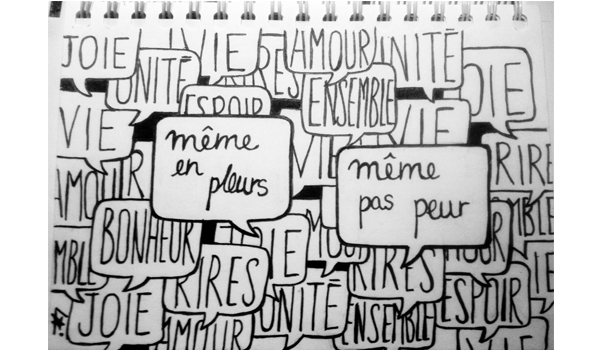 JOIE
VIE
AMOUR
UNITÉ
UNITÉ
RIRES
ENSEMBLE
OIE
ESPOIR
VIE
VIE
VIE
RIRE
même
en
pleurs
même
pas peur
AMOUR
BONHEUR
MBLE
RIRES
IE
RIRES
JOIE
UNITÉ
ESPOIR
AMOUR
ENSEMBLE
VIE